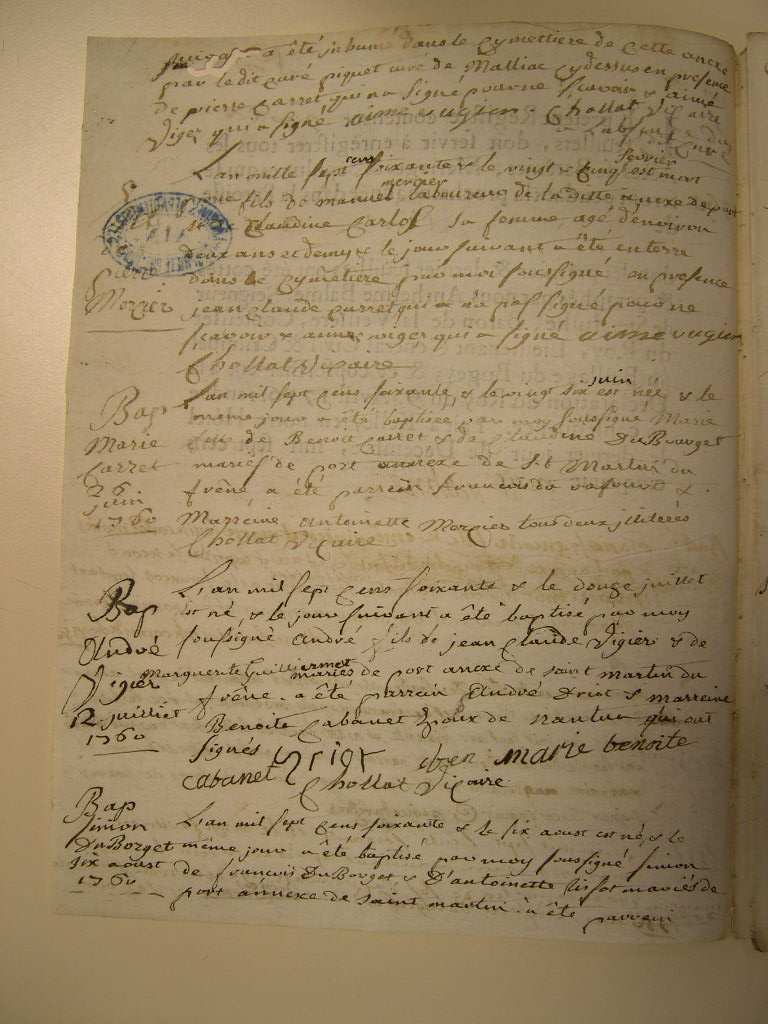 a été inhumé dans le cymettiere de cette anexe
par le dit curé piquet curé de Malliac cydessus en presence
de pierre carret qui n a signé pour ne scavoir & aimé
Viger qui a signé aime vugier Chollat Vicaire
L'an mille sept cens soixante & le vingt & cinq fevrier est mort
fils de manuel mercier laboureur de la ditte anexe de port
& Claudine Carlos sa femme agé d'environ
deux ans et demy & le jour suivant a été enterré
dans le cymetiere par moi soussigné en presence
jean claude carret qui n a pas signé pour ne
scavoir & aimé viger qui a signé aime vugier
Chollat Vicaire
Mercier
Bap
Marie
Carret
26
juin
1760
L'an mil sept cens soixante & le vingt six juin est née & le
meme jour a été baptisée par moy soussigné Marie
fille de Benoit carret & de claudine DuBourget
mariés de port annexe de st Martin du
frêne a été parrein francois &
Marreine antoinette Mercier tous deux illiterés
Chollat Vicaire
Bap
André
Vigier
12 juillet
1760
L'an mil sept cens soixante & le douze juillet
est né, & le jour suivant a été baptisé par moy
soussigné André fils de jean claude Vigier & de
Marguerite Guilliermet mariés de port anexe de saint martin du
frêne a été parrein André & marreine
Benoite Cabanet Epoux de nantua qui ont
signés marie benoite
cabanet
Chollat Vicaire
Bap
Simon
DuBorget
six aoust
1760
L'an mil sept cens soixante & le six aoust est né, & le
même jour a été baptisé par moy soussigné simon
de francois DuBorget & D'antoinette mariés de
port annexe de saint martin a été parrein